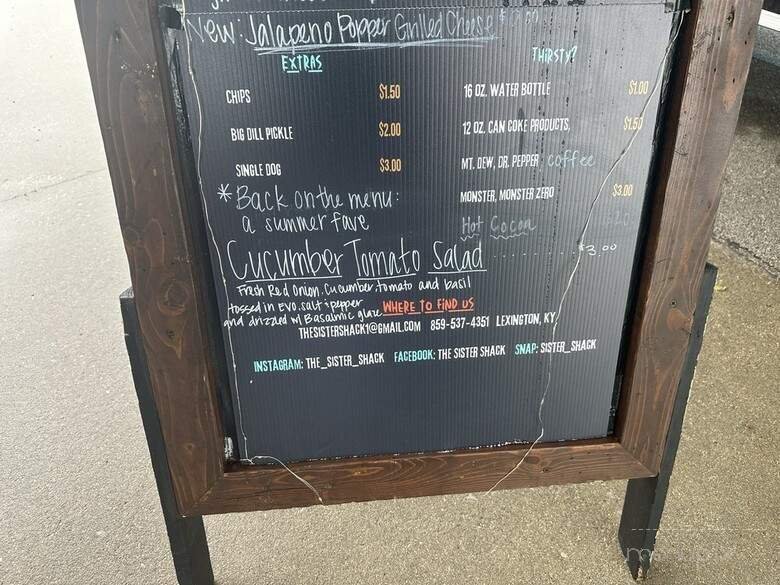 New: Jalapeno Popper Grilled Cheese
EXTRAS
CHIPS $1.50
BIG DILL PICKLE $2.00
SINGLE DOG $3.00
THIRSTY?
16 OZ. WATER BOTTLE $1.00
12 OZ. CAN COKE PRODUCTS, $1.50
MT. DEW, DR. PEPPER, coffee
MONSTER, MONSTER ZERO $3.00
Hot Cocoa
* Back on the menu:
a summer fave
Cucumber Tomato Salad ............ $3.00
Fresh Red Onion, Cucumber, tomato and basil
tossed in EVO, salt & pepper
and drizzled w/ Basalmic glaze
WHERE TO FIND US
THESISTERSHACK1@GMAIL.COM 859-537-4351 LEXINGTON, KY
INSTAGRAM: THE_SISTER_SHACK FACEBOOK: THE SISTER SHACK SNAP: SISTER_SHACK